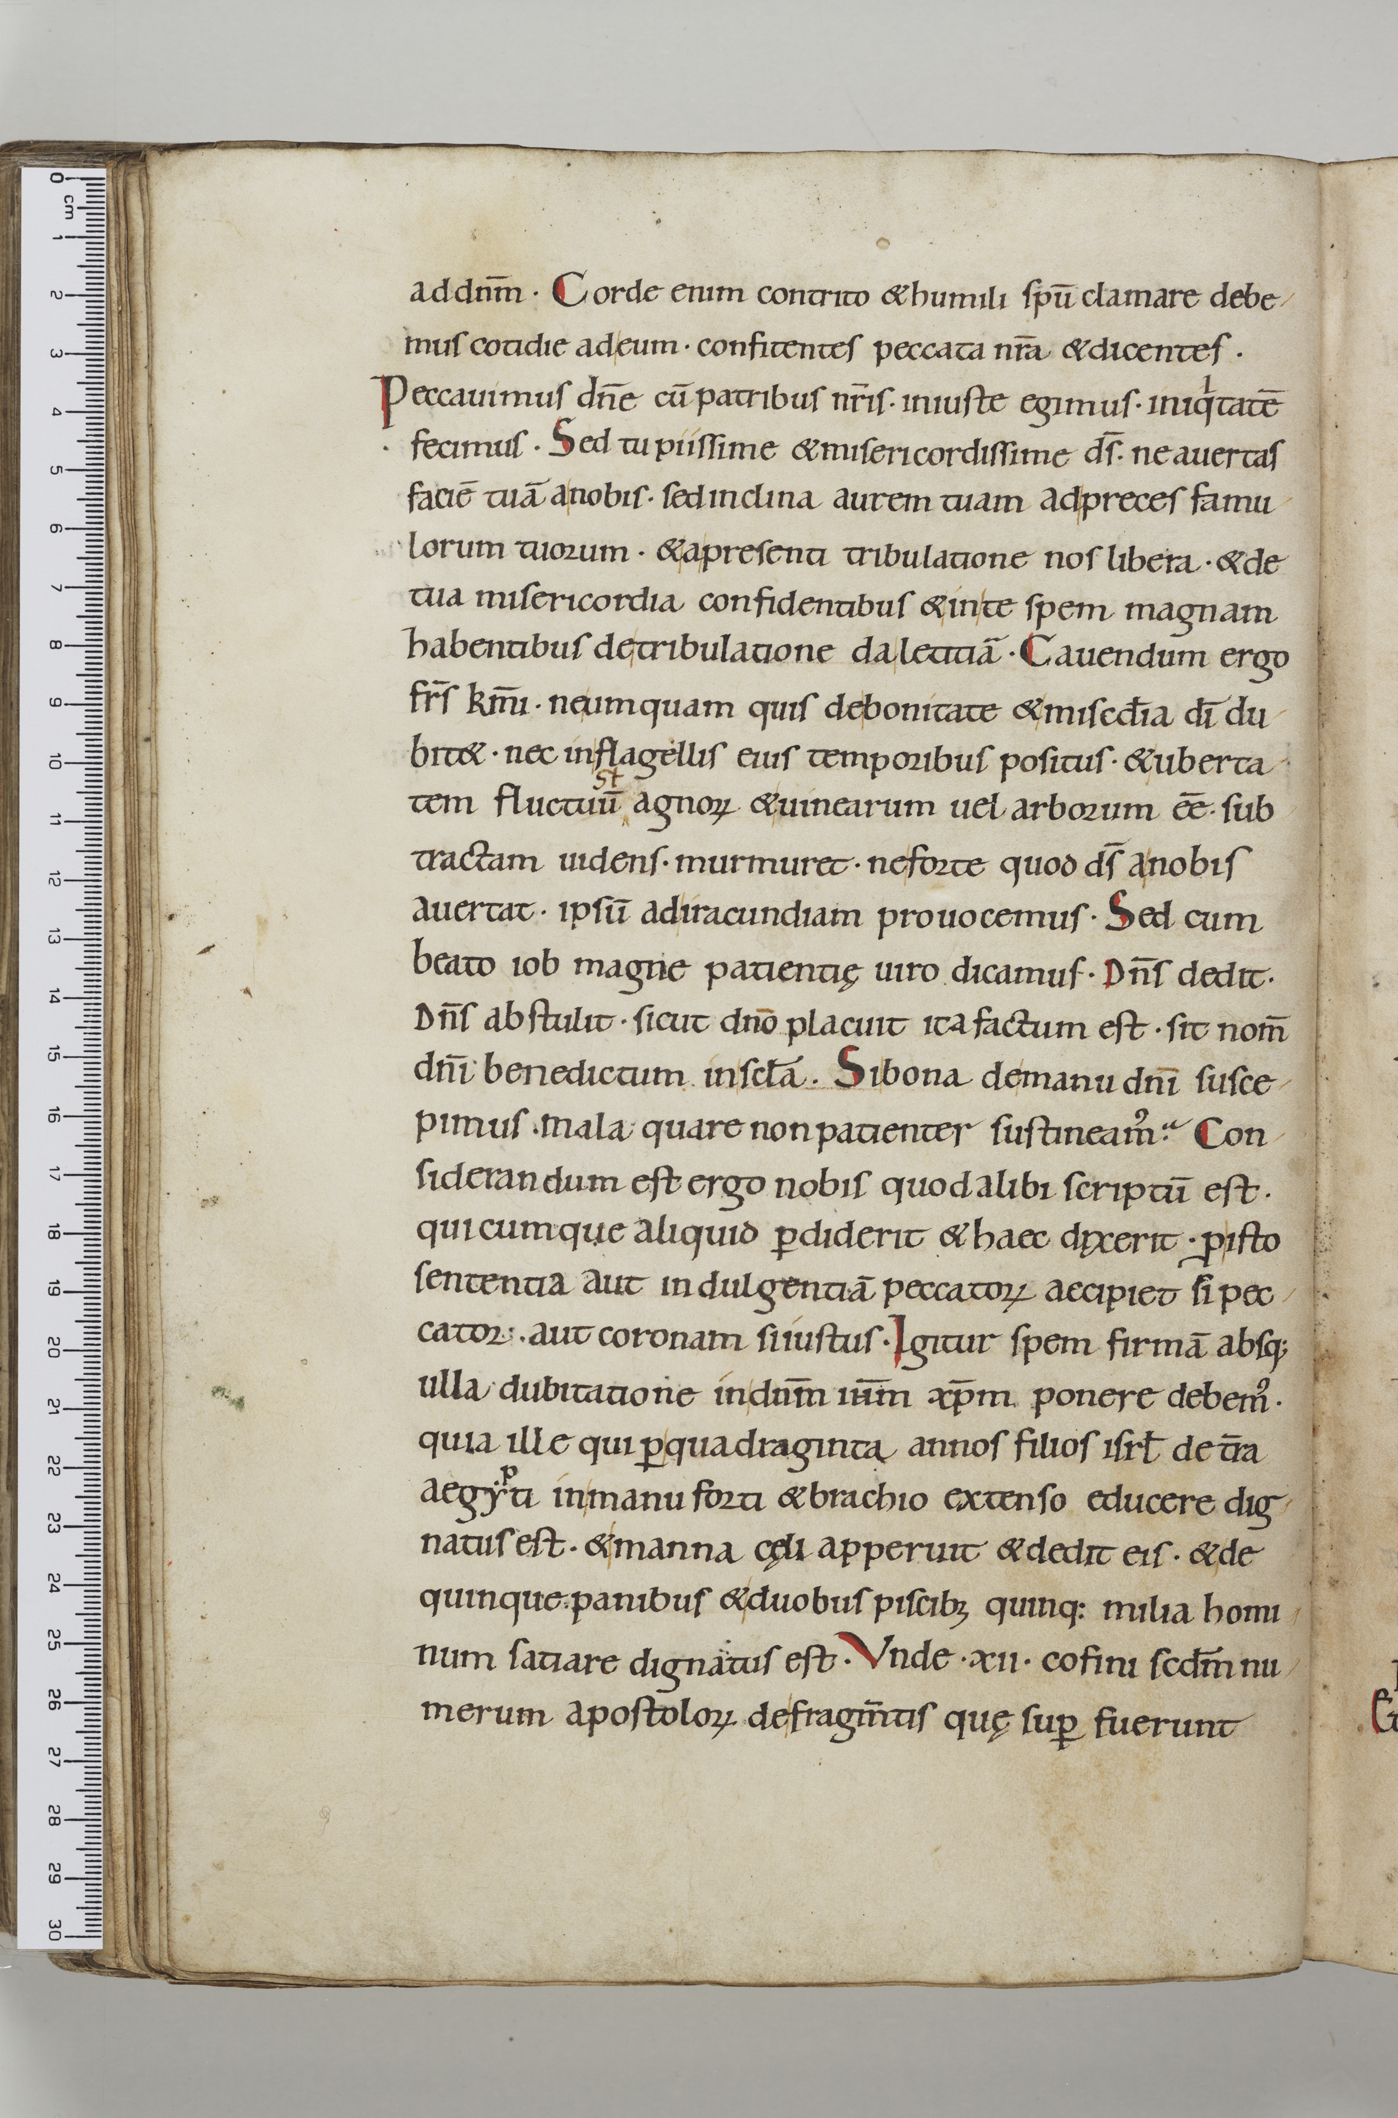 ad dnm̄ · Corde enim contrito & humili spū clamare debe
mus cotidie ad eum · confitentes peccata nr̄a & dicentes ·
Peccauimus dn̄e cū patribus nr̄is · iniuste egimus · iniqⁱtatē
fecimus · Sed tu piissime & misericordissime ds̄ · ne auertas
faciē tuā a nobis · sed inclina aurem tuam ad preces famu
lorum tuorum · & a presenti tribulatione nos libera · & de
tua misericordia confidentibus & in te spem magnam
habentibus de tribulatione da letitiā · Cauendum ergo
fr̄s km̄i · ne umquam quis de bonitate & misc̄dia dī du
bit& · nec in flagellis eius temporibus positus · & uberta
tem fluctuū agnoꝝ & uinearum uel arborum ēe · sub
st
tractam uidens · murmuret · ne forte quod ds̄ a nobis
auertat · ipsū ad iracundiam prouocemus · Sed cum
beato iob magne patientię uiro dicamus · Dn̄s dedit ·
Dn̄s abstulit · sicut dnō placuit ita factum est · sit nom̄
dn̄i benedictum in scl̄a · Si bona de manu dn̄i susce
pimus · mala quare non patienter sustineamꝰ · Con
siderandum est ergo nobis quod alibi scriptū est ·
quicumque aliquid ꝑdiderit & haec dixerit · ꝑ isto
sententia aut indulgentiā peccatoꝝ accipiet si pec
cator · aut coronam si iustus · Igitur spem firmā absq;
ulla dubitatione in dnm̄ nm̄ xp̄m ponere debemꝰ ·
quia ille qui ꝑ quadraginta annos filios isrl̄ de tr̄a
aegypti in manu forti & brachio extenso educere dig
natus est · & manna cęli apperuit & dedit eis · & de
quinque panibus & duobus piscibꝫ quinq: milia homi
num satiare dignatus est · Vnde · xii · cofini scdm̄ nu
merum apostoloꝝ de fragm̄tis quę suꝑ fuerunt